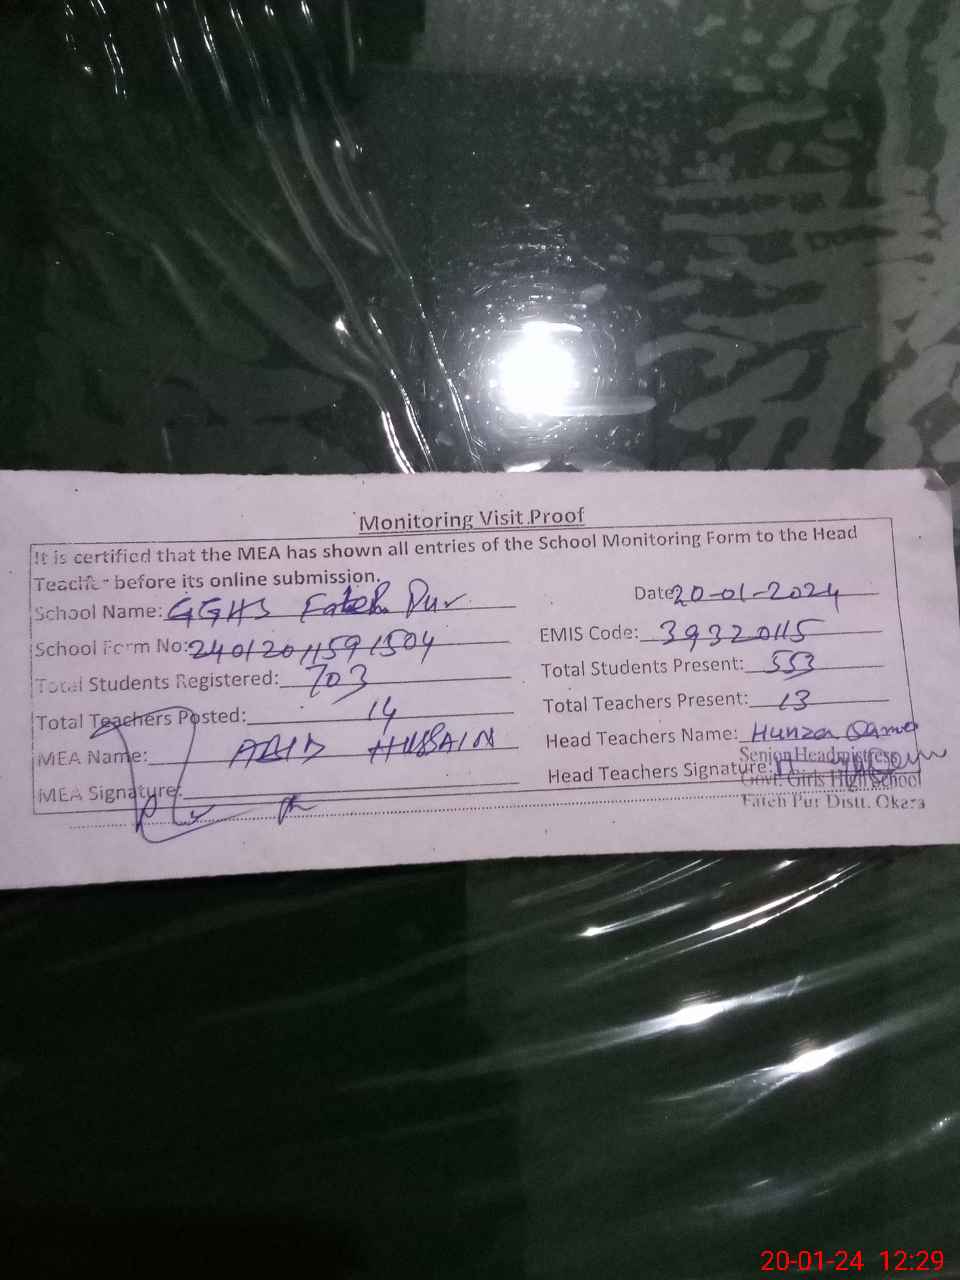 Monitoring Visit Proof
It is certified that the MEA has shown all entries of the School Monitoring Form to the Head
Teacher before its online submission.
School Name: GGHS Fateh Pur Date 20-01-2024
School Form No: 24012011591504 EMIS Code: 39320115
Total Students Registered: 703 Total Students Present: 553
Total Teachers Posted: 14 Total Teachers Present: 13
MEA Name: ABID HUSSAIN Head Teachers Name: Hunza
MEA Signature: Head Teachers Signature:
Senior Headmistress
Govt. Girls High School
Fateh Pur Distt. Okara
20-01-24 12:29